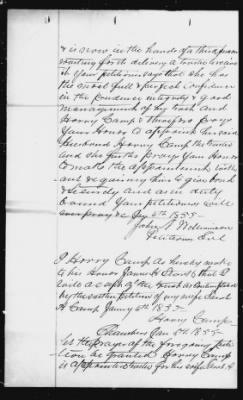 & is now in the hands of a third person
waiting for the delivery a trustee to receive
it Your petitioner says that she has
the most full & perfect confidence
in the prudence integrity & good
management of her husband
Harvy Camp & therefore prays
Your Honor to appoint her said
Husband Harvy Camp her trustee
and she further prays Your Honor
to make the appointment without
requiring him to give bond
& security and as in duty
bound Your petitioner will
ever pray & c Jany 5th 1855
John
Petitioners Sol
I Harvy Camp do hereby make
to his Honor James that I
will accept of the trust as
by the within petition of my wife
A Camp January 5th 1855
Harvy Camp
Chambers Jan 5th 1855
Let the prayer of the foregoing peti-
tion be granted Harvy Camp
is appointed trustee for his wife